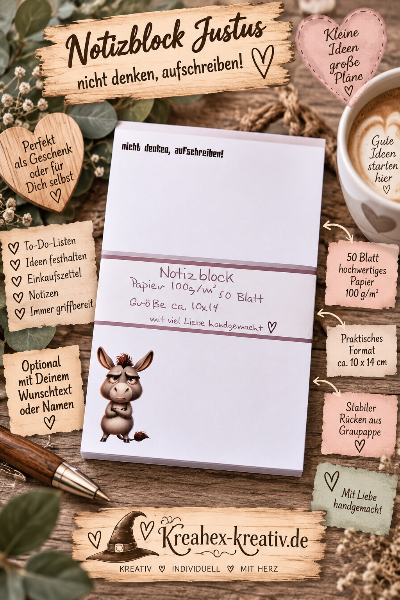 Notizblock Justus
nicht denken, aufschreiben!
Kleine
Ideen
große
Pläne
Perfekt
als Geschenk
oder für
Dich selbst
nicht denken, aufschreiben!
Gute
Ideen
starten
hier
To-Do-Listen
Ideen festhalten
Einkaufszettel
Notizen
Immer griffbereit
Notizblock
Papier 100g/m² 50 Blatt
Größe ca. 10x14
mit viel Liebe handgemacht
50 Blatt
hochwertiges
Papier
100 g/m²
Praktisches
Format
ca. 10 x 14 cm
Optional
mit Deinem
Wunschtext
oder Namen
Stabiler
Rücken aus
Graupappe
Mit Liebe
handgemacht
Kreahex-kreativ.de
KREATIV INDIVIDUELL MIT HERZ